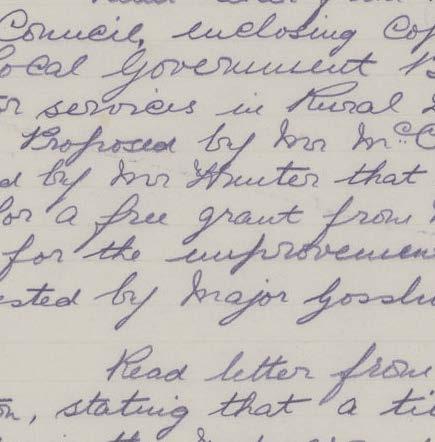 Read
Council, enclosing Cop
Local Government B
or services in Rural
Proposed by Mr McC
d by Mr Hunter that
for a free grant from
for the improvemen
ested by Major Gossl
Read letter from
on, stating that a ti